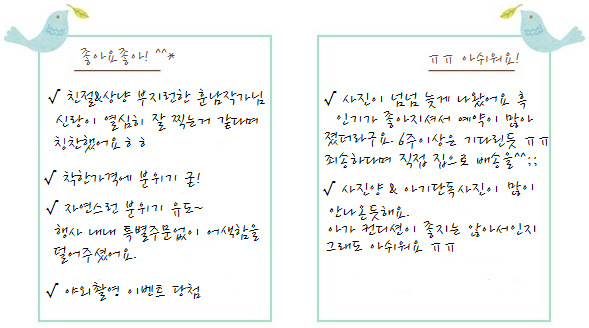 좋아요좋아! ^^*
√ 친절&상냥 부지런한 훈남작가님
신랑이 열심히 잘 찍는거 같다며
칭찬했어요ㅎㅎ
√ 착한가격에 분위기 굳!
√ 자연스런 분위기 유도~
행사 내내 특별주문없이 어색함을
덜어주셨어요.
√ 야외촬영 이벤트 당첨
ㅠㅠ 아쉬워요!
√ 사진이 넘넘 늦게 나왔어요 흑
인기가 좋아지셔서 예약이 많아
졌더라구요. 6주이상은 기다린듯 ㅠㅠ
죄송하다며 직접 집으로 배송을^^;;
√ 사진양 & 아기단독사진이 많이
안나온듯해요.
아가 컨디션이 좋지는 않아서인지
그래도 아쉬워요 ㅠㅠ